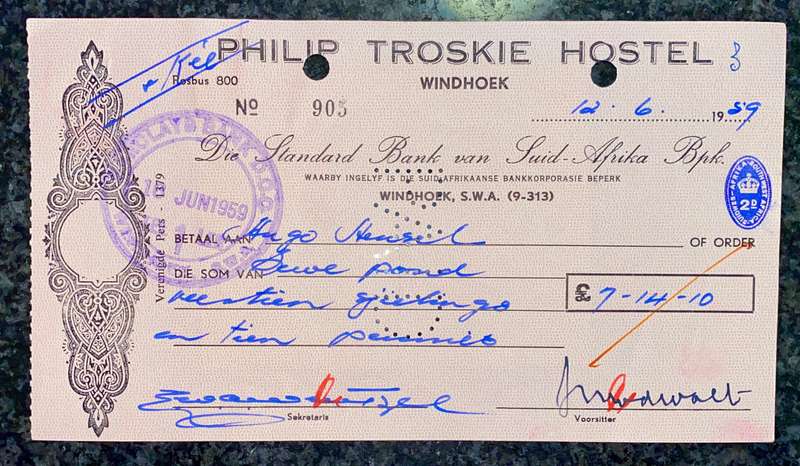 PHILIP TROSKIE HOSTEL 3
& Kie
Posbus 800
WINDHOEK
No 905
12 . 6 . 1959
Die Standard Bank van Suid-Afrika Bpk.
WAARBY INGELYF IS DIE SUID-AFRIKAANSE BANKKORPORASIE BEPERK
WINDHOEK, S.W.A. (9-313)
BARCLAYS BANK D.C.O.
JUN 1959
SUIDWES-AFRIKA SOUTH WEST AFRICA
2D
Verenigde Pers - 1379
BETAAL AAN Hugo Hensel OF ORDER
DIE SOM VAN Sewe pond
veertien sjielings £ 7-14-10
en tien pennies
Sekretaris
Voorsitter